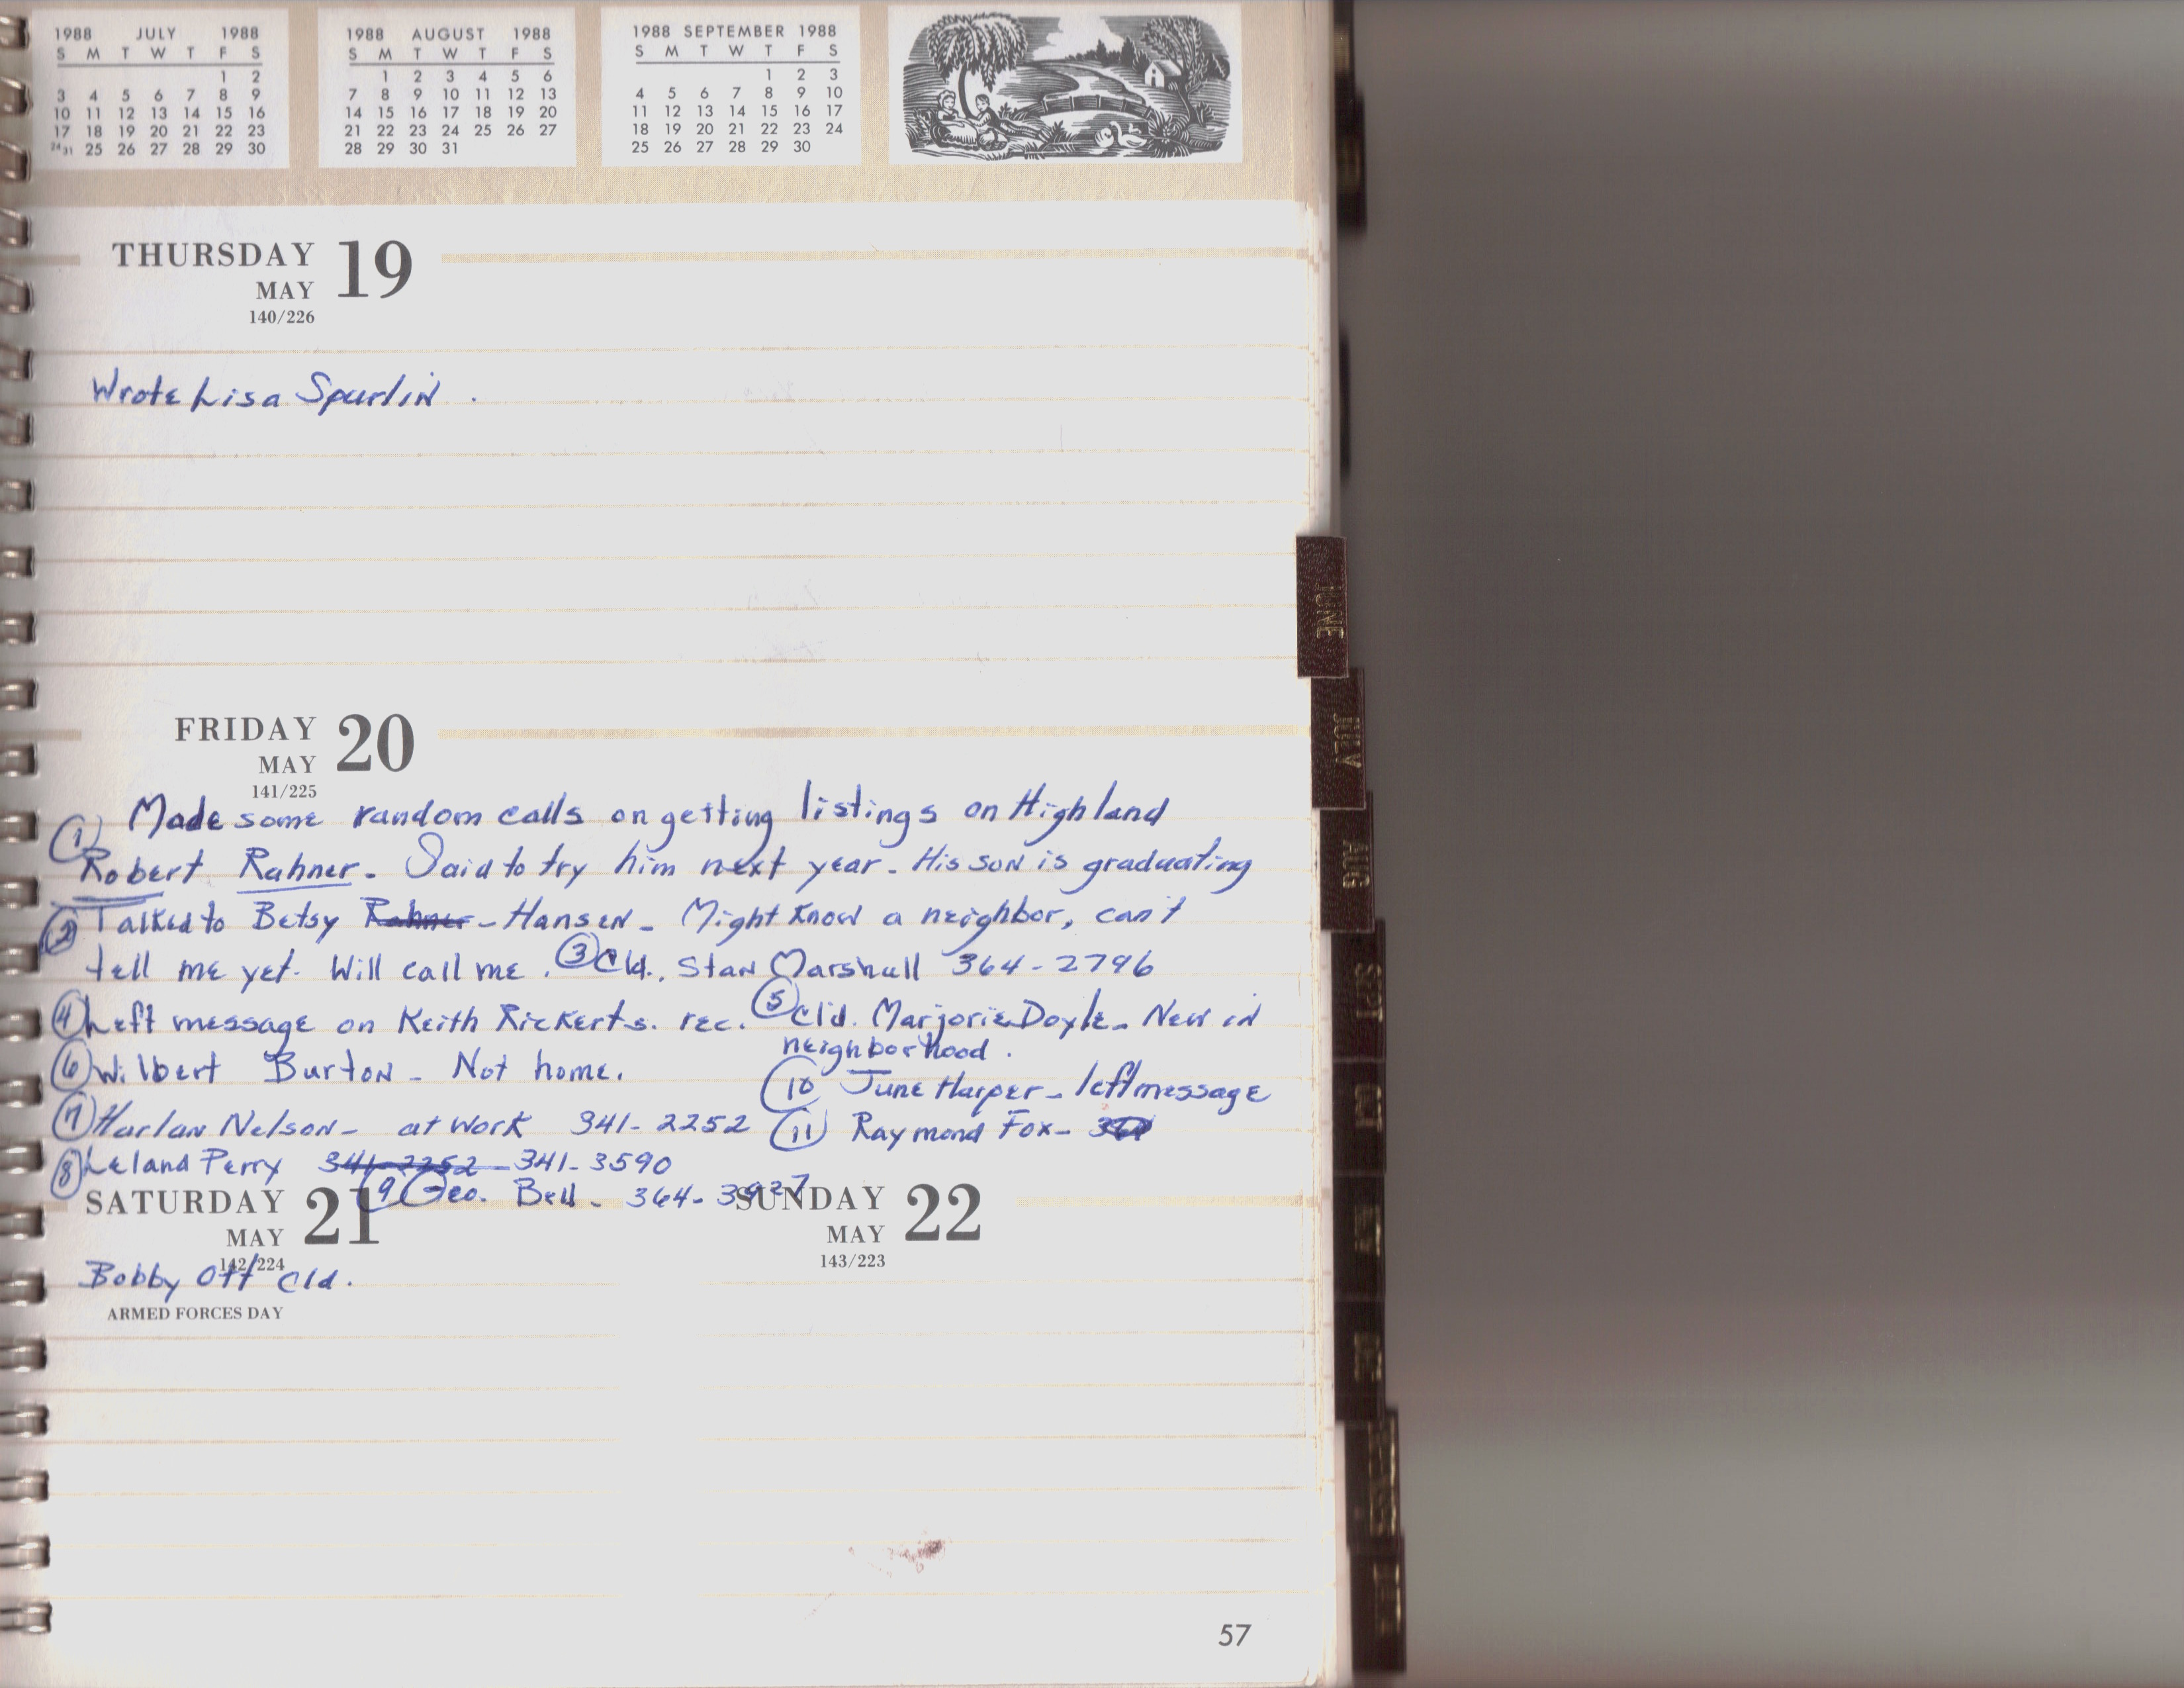 1988 JULY 1988
S M T W T F S
1 2
3 4 5 6 7 8 9
10 11 12 13 14 15 16
17 18 19 20 21 22 23
24 31 25 26 27 28 29 30
1988 AUGUST 1988
S M T W T F S
1 2 3 4 5 6
7 8 9 10 11 12 13
14 15 16 17 18 19 20
21 22 23 24 25 26 27
28 29 30 31
1988 SEPTEMBER 1988
S M T W T F S
1 2 3
4 5 6 7 8 9 10
11 12 13 14 15 16 17
18 19 20 21 22 23 24
25 26 27 28 29 30
THURSDAY 19
MAY
140/226
Wrote Lisa Spurlin .
FRIDAY 20
MAY
141/225
Made some random calls on getting listings on Highland
1 Robert Rahner. Said to try him next year. His son is graduating
2 Talked to Betsy Rahner - Hansen - Might know a neighbor, can't
tell me yet. Will call me . 3 Cld., Stan Marshall 364-2796
4 Left message on Keith Rickerts. rec. 5 Cld. Marjorie Doyle - New in
neighborhood .
6 Wilbert Burton - Not home.
10 June Harper - left message
7 Harlan Nelson - at work 341-2252
11 Raymond Fox -
8 Leland Perry 341-2252 - 341-3590
9 Geo. Bell - 364-3927
SATURDAY 21
MAY
142/224
Bobby Ott Cld.
ARMED FORCES DAY
SUNDAY 22
MAY
143/223
57
JUNE
JULY
AUG
SEPT
OCT